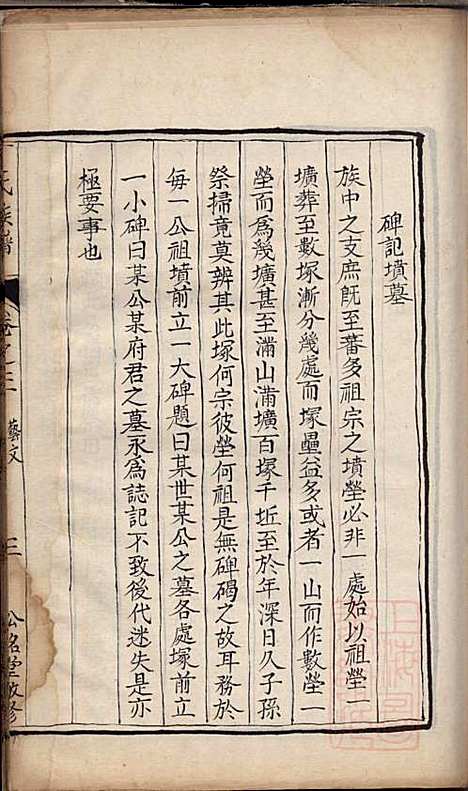 碑記墳墓
族中之支庶旣至蕃多祖宗之墳塋必非一處始以祖塋一
壙葬至數塚漸分幾處而塚壘益多或者一山而作數塋一
塋而爲幾壙甚至滿山滿壙百塚千近至於年深日久子孫
祭掃竟莫辨其此塚何宗彼塋何祖是無碑碣之故耳務於
每一公祖墳前立一大碑題曰某世某公之墓各處塚前立
一小碑曰某公某府君之墓永為誌記不致後代迷失是亦
極要事也
氏族譜
卷之三
藝文
三